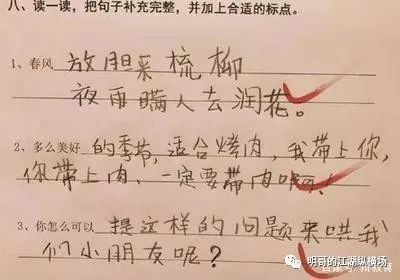 八、读一读，把句子补充完整，并加上合适的标点。
1、春风 放胆来梳柳
夜雨瞒人去润花。
2、多么美好 的季节，适合烤肉，我带上你，
你带上肉，一定要带肉呀！
3、你怎么可以 提这样的问题来哄我
们小朋友呢？
明哥的江湖纵横场